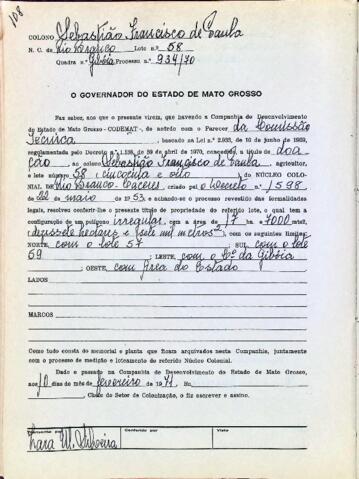 108
COLONO Sebastião Francisco de Paula
N. C. de Rio Branco Lote n.º 58
Quadra n.º Gibóia Processo n.º 934/70
O GOVERNADOR DO ESTADO DE MATO GROSSO
Faz saber, aos que o presente virem, que havendo a Companhia de Desenvolvimento
do Estado de Mato Grosso - CODEMAT -, de acôrdo com o Parecer da Comissão
Técnica, baseado na Lei n.º 2.935, de 16 de junho de 1969,
regulamentada pelo Decreto n.º 1.138, de 29 de abril de 1970, concedido, a título de doa-
ção ao colono Sebastião Francisco de Paula agricultor,
o lote número 58 (cincoenta e oito) do NÚCLEO COLO-
NIAL DE Rio Branco-Cáceres, criado pelo Decreto n.º 1598
de 22 de maio de 19 53. e achando-se o processo revestido das formalidades
legais, resolveu conferir-lhe o presente título de propriedade do referido lote, o qual tem a
configuração de um polígono irregular com a área de 17 ha 7000 mts2,
(dezessete hectares e sete mil metros2), com os seguintes limites:
NORTE, com o lote 57; SUL, com o lote
59; LESTE, com o Cº da Gibóia
; OESTE, com Área do Estado
LADOS
MARCOS
Como tudo consta do memorial e planta que ficam arquivados nesta Companhia, juntamente
com o processo de medição e loteamento do referido Núcleo Colonial.
Dado e passado na Companhia de Desenvolvimento do Estado de Mato Grosso,
aos 10 dias do mês de fevereiro de 19 71.
, Chefe do Setor de Colonização, o fiz escrever e assino.
Conferido por Visto